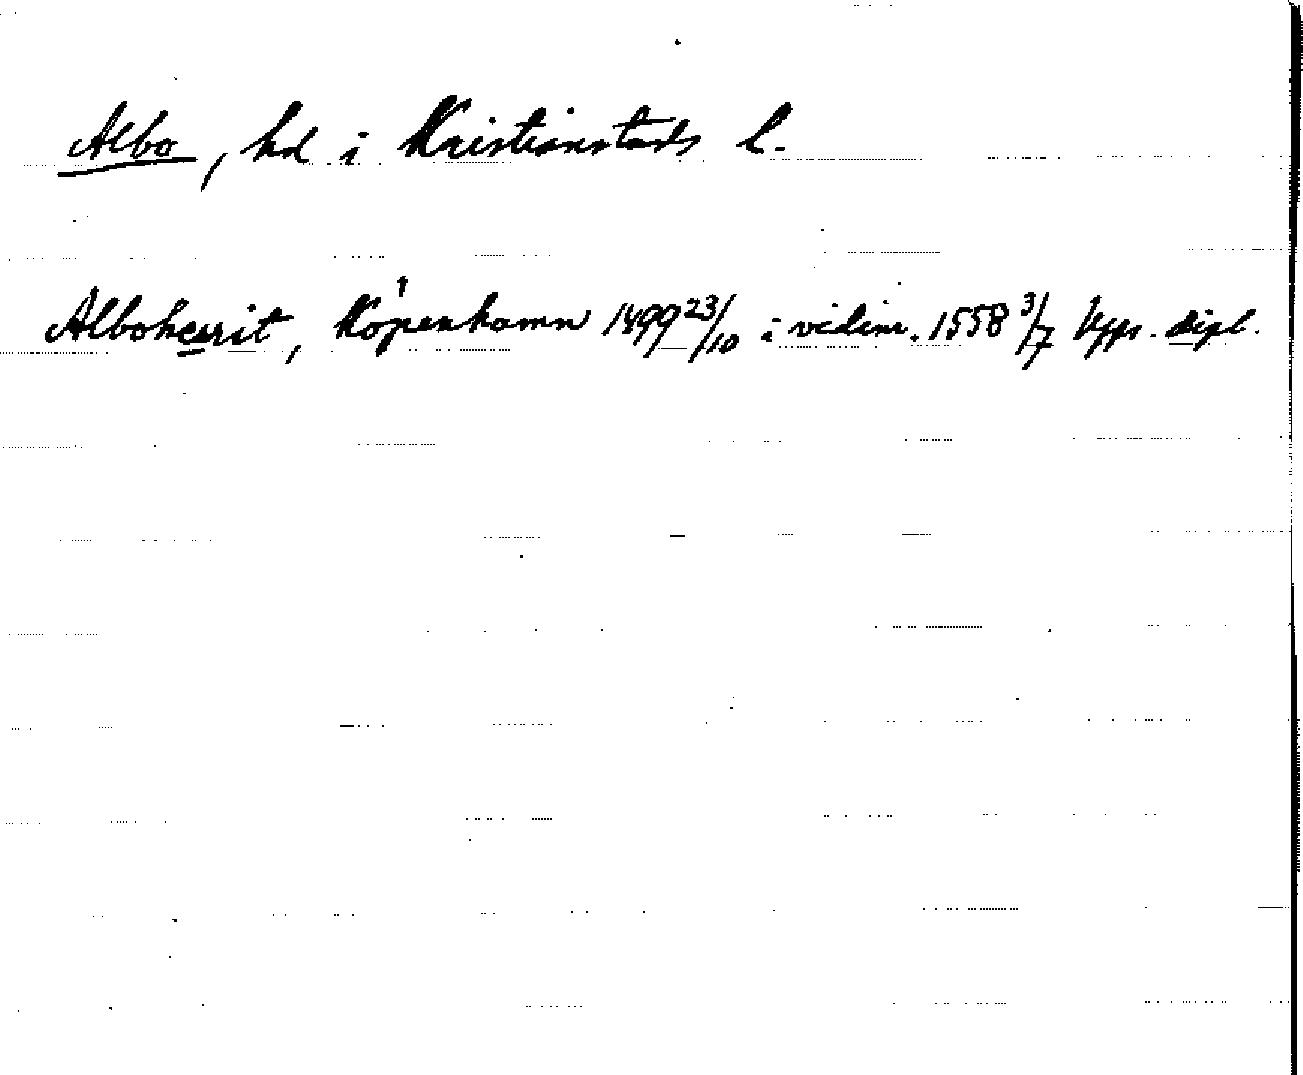 Albo, hd i Kristianstads l.
Alboherrit, Köpenhamn 1499 23/10 i vidim. 1558 3/7 Upps. dipl.